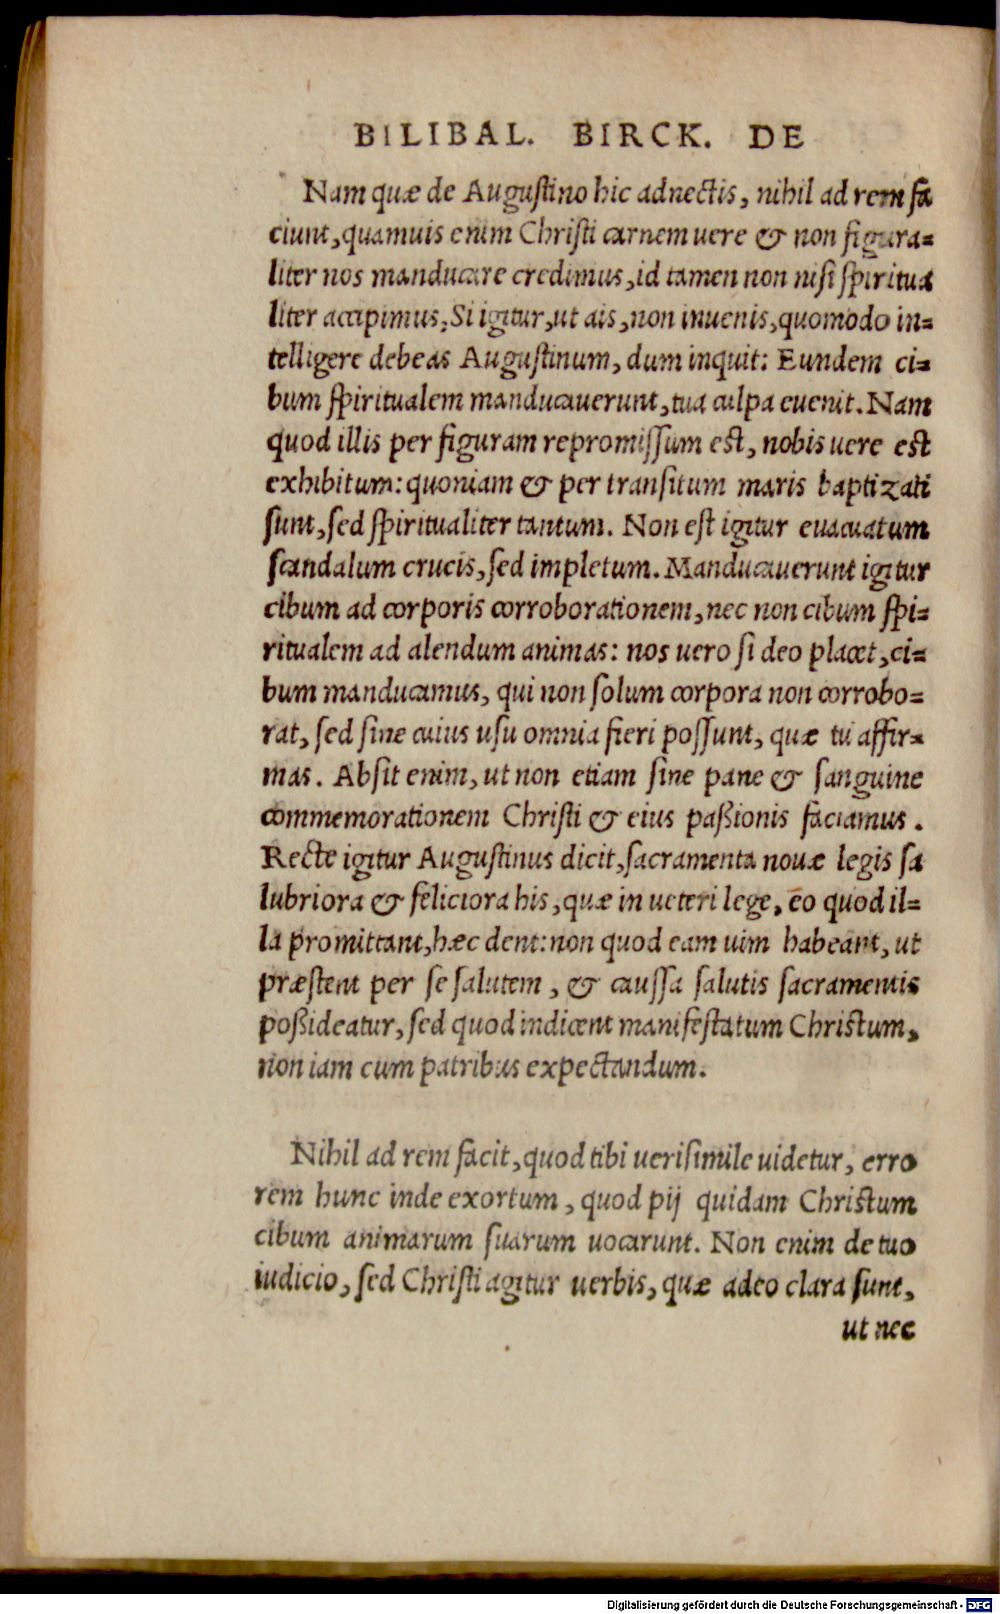 BILIBAL. BIRCK. DE
Nam quæ de Augustino hic adnectis, nihil ad rem fa
ciunt, quamuis enim Christi carnem uere & non figura=
liter nos manducare credimus, id tamen non nisi spiritua
liter accipimus, Si igitur, ut ais, non inuenis, quomodo in=
telligere debeas Augustinum, dum inquit: Eundem ci=
bum spiritualem manducauerunt, tua culpa euenit. Nam
quod illis per figuram repromissum est, nobis uere est
exhibitum: quoniam & per transitum maris baptizati
sunt, sed spiritualiter tantum. Non est igitur euacuatum
scandalum crucis, sed impletum. Manducauerunt igitur
cibum ad corporis corroborationem, nec non cibum spi=
ritualem ad alendum animas: nos uero si deo placet, ci=
bum manducamus, qui non solum corpora non corrobo=
rat, sed sine cuius usu omnia fieri possunt, quæ tu affir=
mas. Absit enim, ut non etiam sine pane & sanguine
commemorationem Christi & eius paßionis faciamus.
Recte igitur Augustinus dicit, sacramenta nouæ legis sa
lubriora & feliciora his, quæ in ueteri lege, eo quod il=
la promittant, hæc dent: non quod eam uim habeant, ut
præstent per se salutem, & caussa salutis sacramentis
poßideatur, sed quod indicent manifestatum Christum,
non iam cum patribus expectandum.
Nihil ad rem facit, quod tibi uerisimile uidetur, erro
rem hunc inde exortum, quod pij quidam Christum
cibum animarum suarum uocarunt. Non enim de tuo
iudicio, sed Christi agitur uerbis, quæ adeo clara sunt,
ut nec
Digitalisierung gefördert durch die Deutsche Forschungsgemeinschaft - DFG